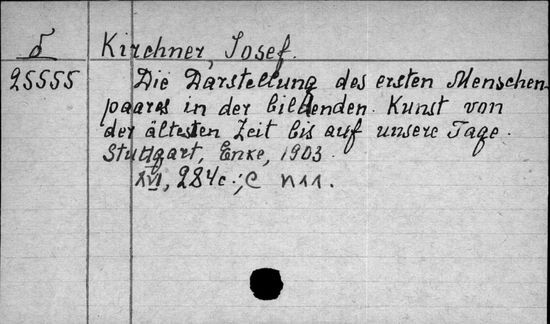 б Kirchner, Josef.
25555 Die Darstellung des ersten Menschen-
paares in der bildenden Kunst von
der ältesten Zeit bis auf unsere Tage.
Stuttgart, Enke, 1903.
XVI, 284c.; С илл.